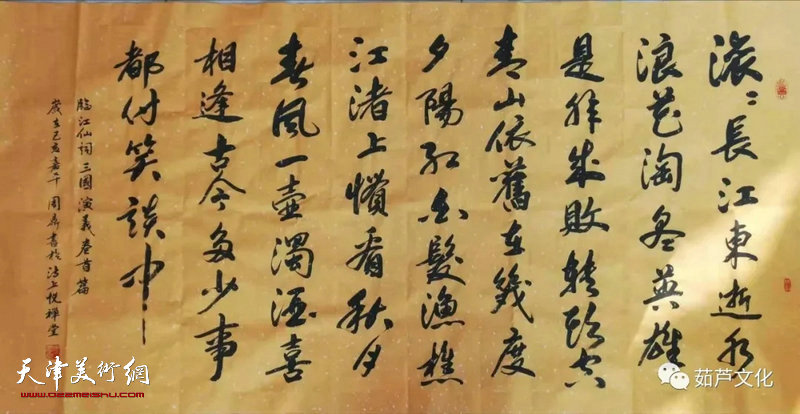 滚〻長江東逝水
浪花淘尽英雄
是非成敗转头空
青山依舊在幾度
夕陽红白髮漁樵
江渚上慣看秋月
春风一壶濁酒喜
相逢古今多少事
都付笑談中
临江仙词三國演義卷首篇
歲在己亥嘉平周書於沽上悦禅堂
天津美術網
www.022meishu.com
茹芦文化